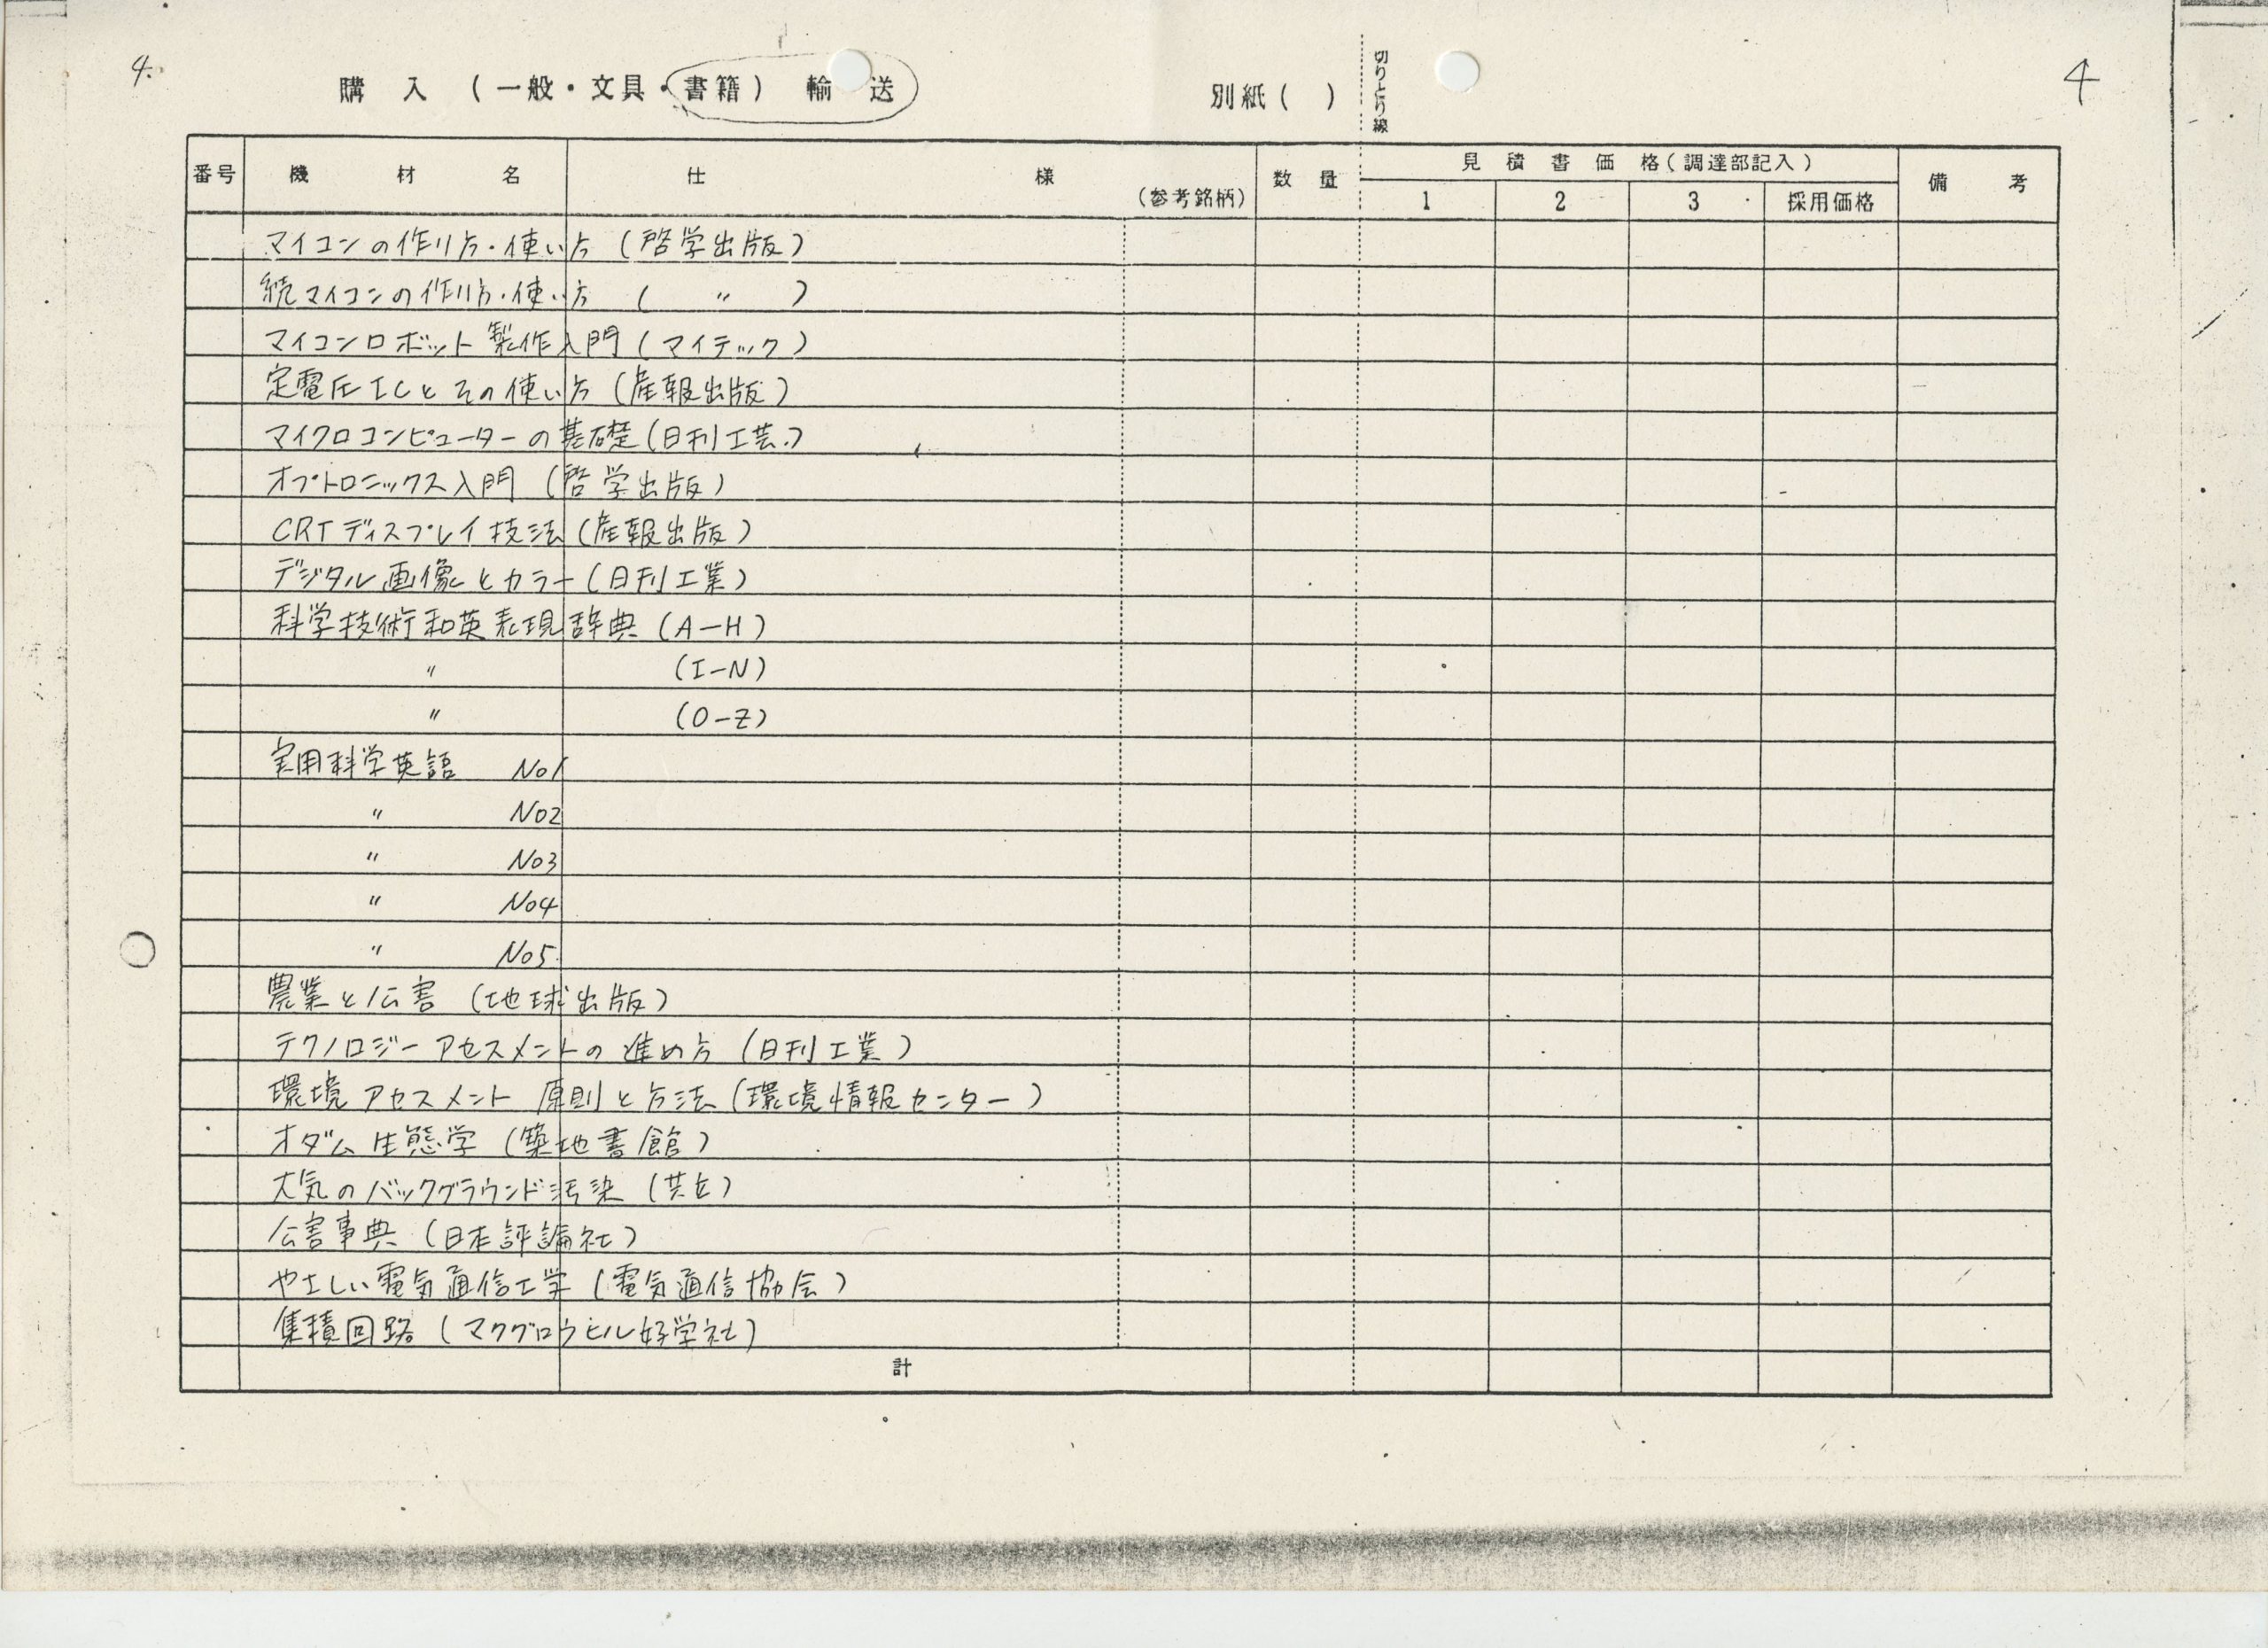 4.
購入（一般・文具・書籍）輸送
別紙（　）
切りとり線
4
番号　機材名　仕様　（参考銘柄）　数量　見積書価格（調達部記入）　備考
1　2　3　採用価格
マイコンの作り方・使い方（啓学出版）
続マイコンの作り方・使い方（　〃　）
マイコンロボット製作入門（マイテック）
定電圧ICとその使い方（産報出版）
マイクロコンピューターの基礎（日刊工芸.）
オプトロニックス入門（啓学出版）
CRTディスプレイ技法（産報出版）
デジタル画像とカラー（日刊工業）
科学技術和英表現辞典（A-H）
〃　（I-N）
〃　（O-Z）
実用科学英語　No1
〃　No2
〃　No3
〃　No4
〃　No5.
農業と公害（地球出版）
テクノロジーアセスメントの進め方（日刊工業）
環境アセスメント原則と方法（環境情報センター）
オダム生態学（築地書館）
大気のバックグラウンド汚染（共立）
公害事典（日本評論社）
やさしい電気通信工学（電気通信協会）
集積回路（マクグロウヒル好学社）
計